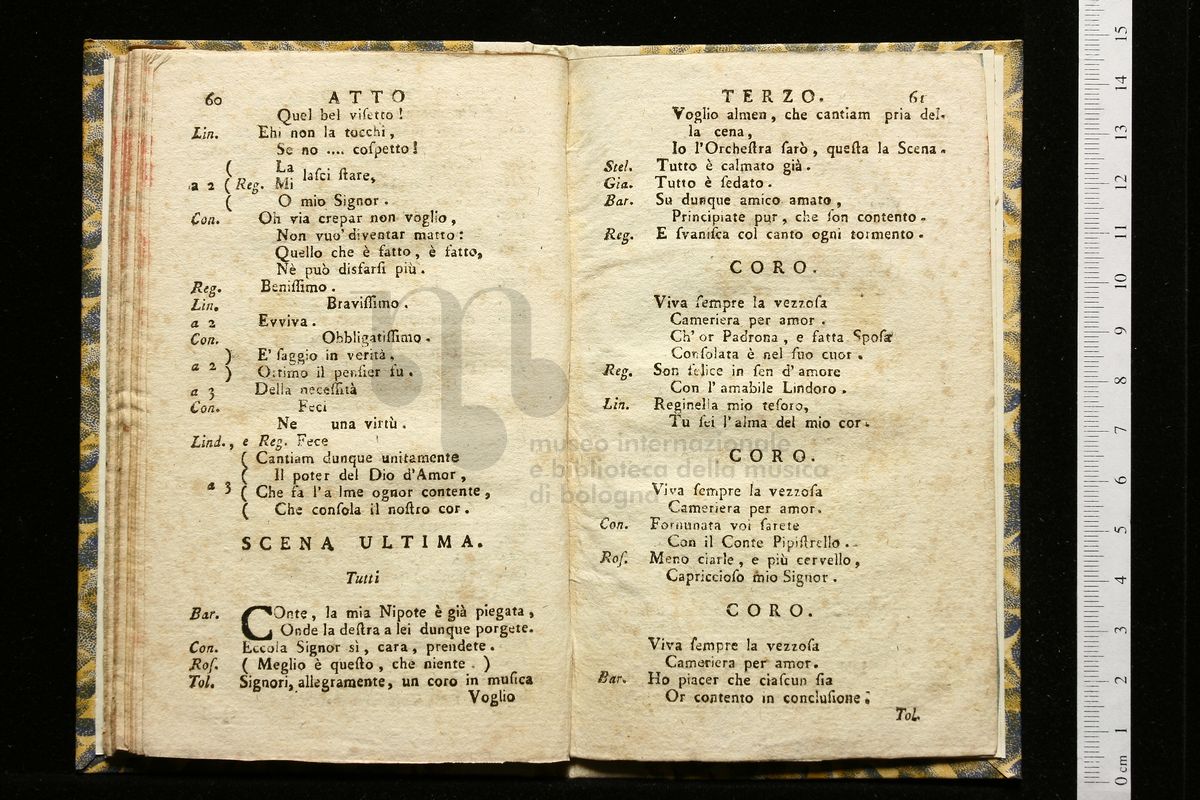 60 ATTO
Quel bel viſetto!
Lin. Ehi non la tocchi,
Se no .... coſpetto!
( La
a 2 ( Reg. Mi laſci ſtare,
( O mio Signor.
Con. Oh via crepar non voglio,
Non vuo' diventar matto:
Quello che è fatto, è fatto,
Nè può disfarſi più.
Reg. Beniſſimo.
Lin. Braviſſimo.
a 2 Evviva.
Con. Obbligatiſſimo.
a 2 ) E' ſaggio in verità.
) Ottimo il penſier fu.
a 3 Della neceſſità
Con. Feci
Ne una virtù.
Lind., e Reg. Fece
( Cantiam dunque unitamente
( Il poter del Dio d'Amor,
a 3 ( Che fa l'a lme ognor contente,
( Che conſola il noſtro cor.
SCENA ULTIMA.
Tutti
Bar. COnte, la mia Nipote è già piegata,
Onde la deſtra a lei dunque porgete.
Con. Eccola Signor sì, cara, prendete.
Roſ. ( Meglio è queſto, che niente. )
Tol. Signori, allegramente, un coro in muſica
Voglio
TERZO. 61
Voglio almen, che cantiam pria del-
la cena,
Io l'Orcheſtra farò, queſta la Scena.
Stel. Tutto è calmato già.
Gia. Tutto è ſedato.
Bar. Su dunque amico amato,
Principiate pur, che ſon contento.
Reg. E ſvaniſca col canto ogni tormento.
CORO.
Viva ſempre la vezzoſa
Cameriera per amor.
Ch' or Padrona, e fatta Spoſa
Conſolata è nel ſuo cuor.
Reg. Son felice in ſen d'amore
Con l'amabile Lindoro.
Lin. Reginella mio teſoro,
Tu ſei l'alma del mio cor.
CORO.
Viva ſempre la vezzoſa
Cameriera per amor.
Con. Fortunata voi ſarete
Con il Conte Pipiſtrello.
Roſ. Meno ciarle, e più cervello,
Capriccioſo mio Signor.
CORO.
Viva ſempre la vezzoſa
Cameriera per amor.
Bar. Ho piacer che ciaſcun ſia
Or contento in concluſione;
Tol.
museo internazionale
e biblioteca della musica
di bologna
15
14
13
12
11
10
9
8
7
6
5
4
3
2
1
0 cm